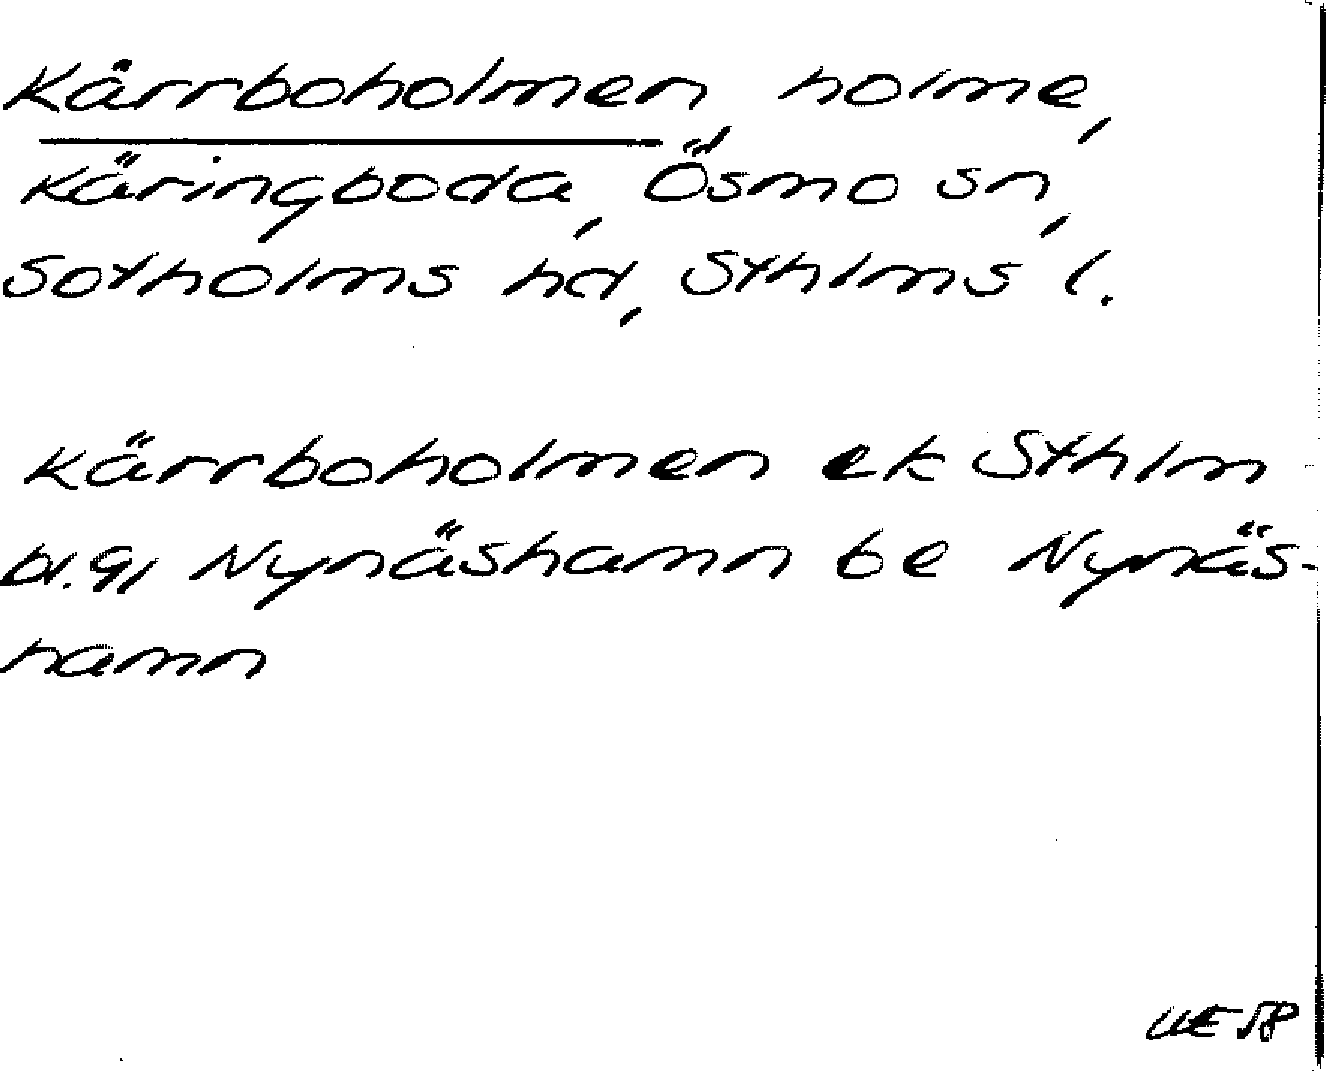 Kärrboholmen, holme,
Käringboda, Ösmo sn,
Sotholms hd, Sthlms l.
Kärrboholmen ek Sthlm
bl. 91 Nynäshamn be Nynäs-
hamn
UE 58